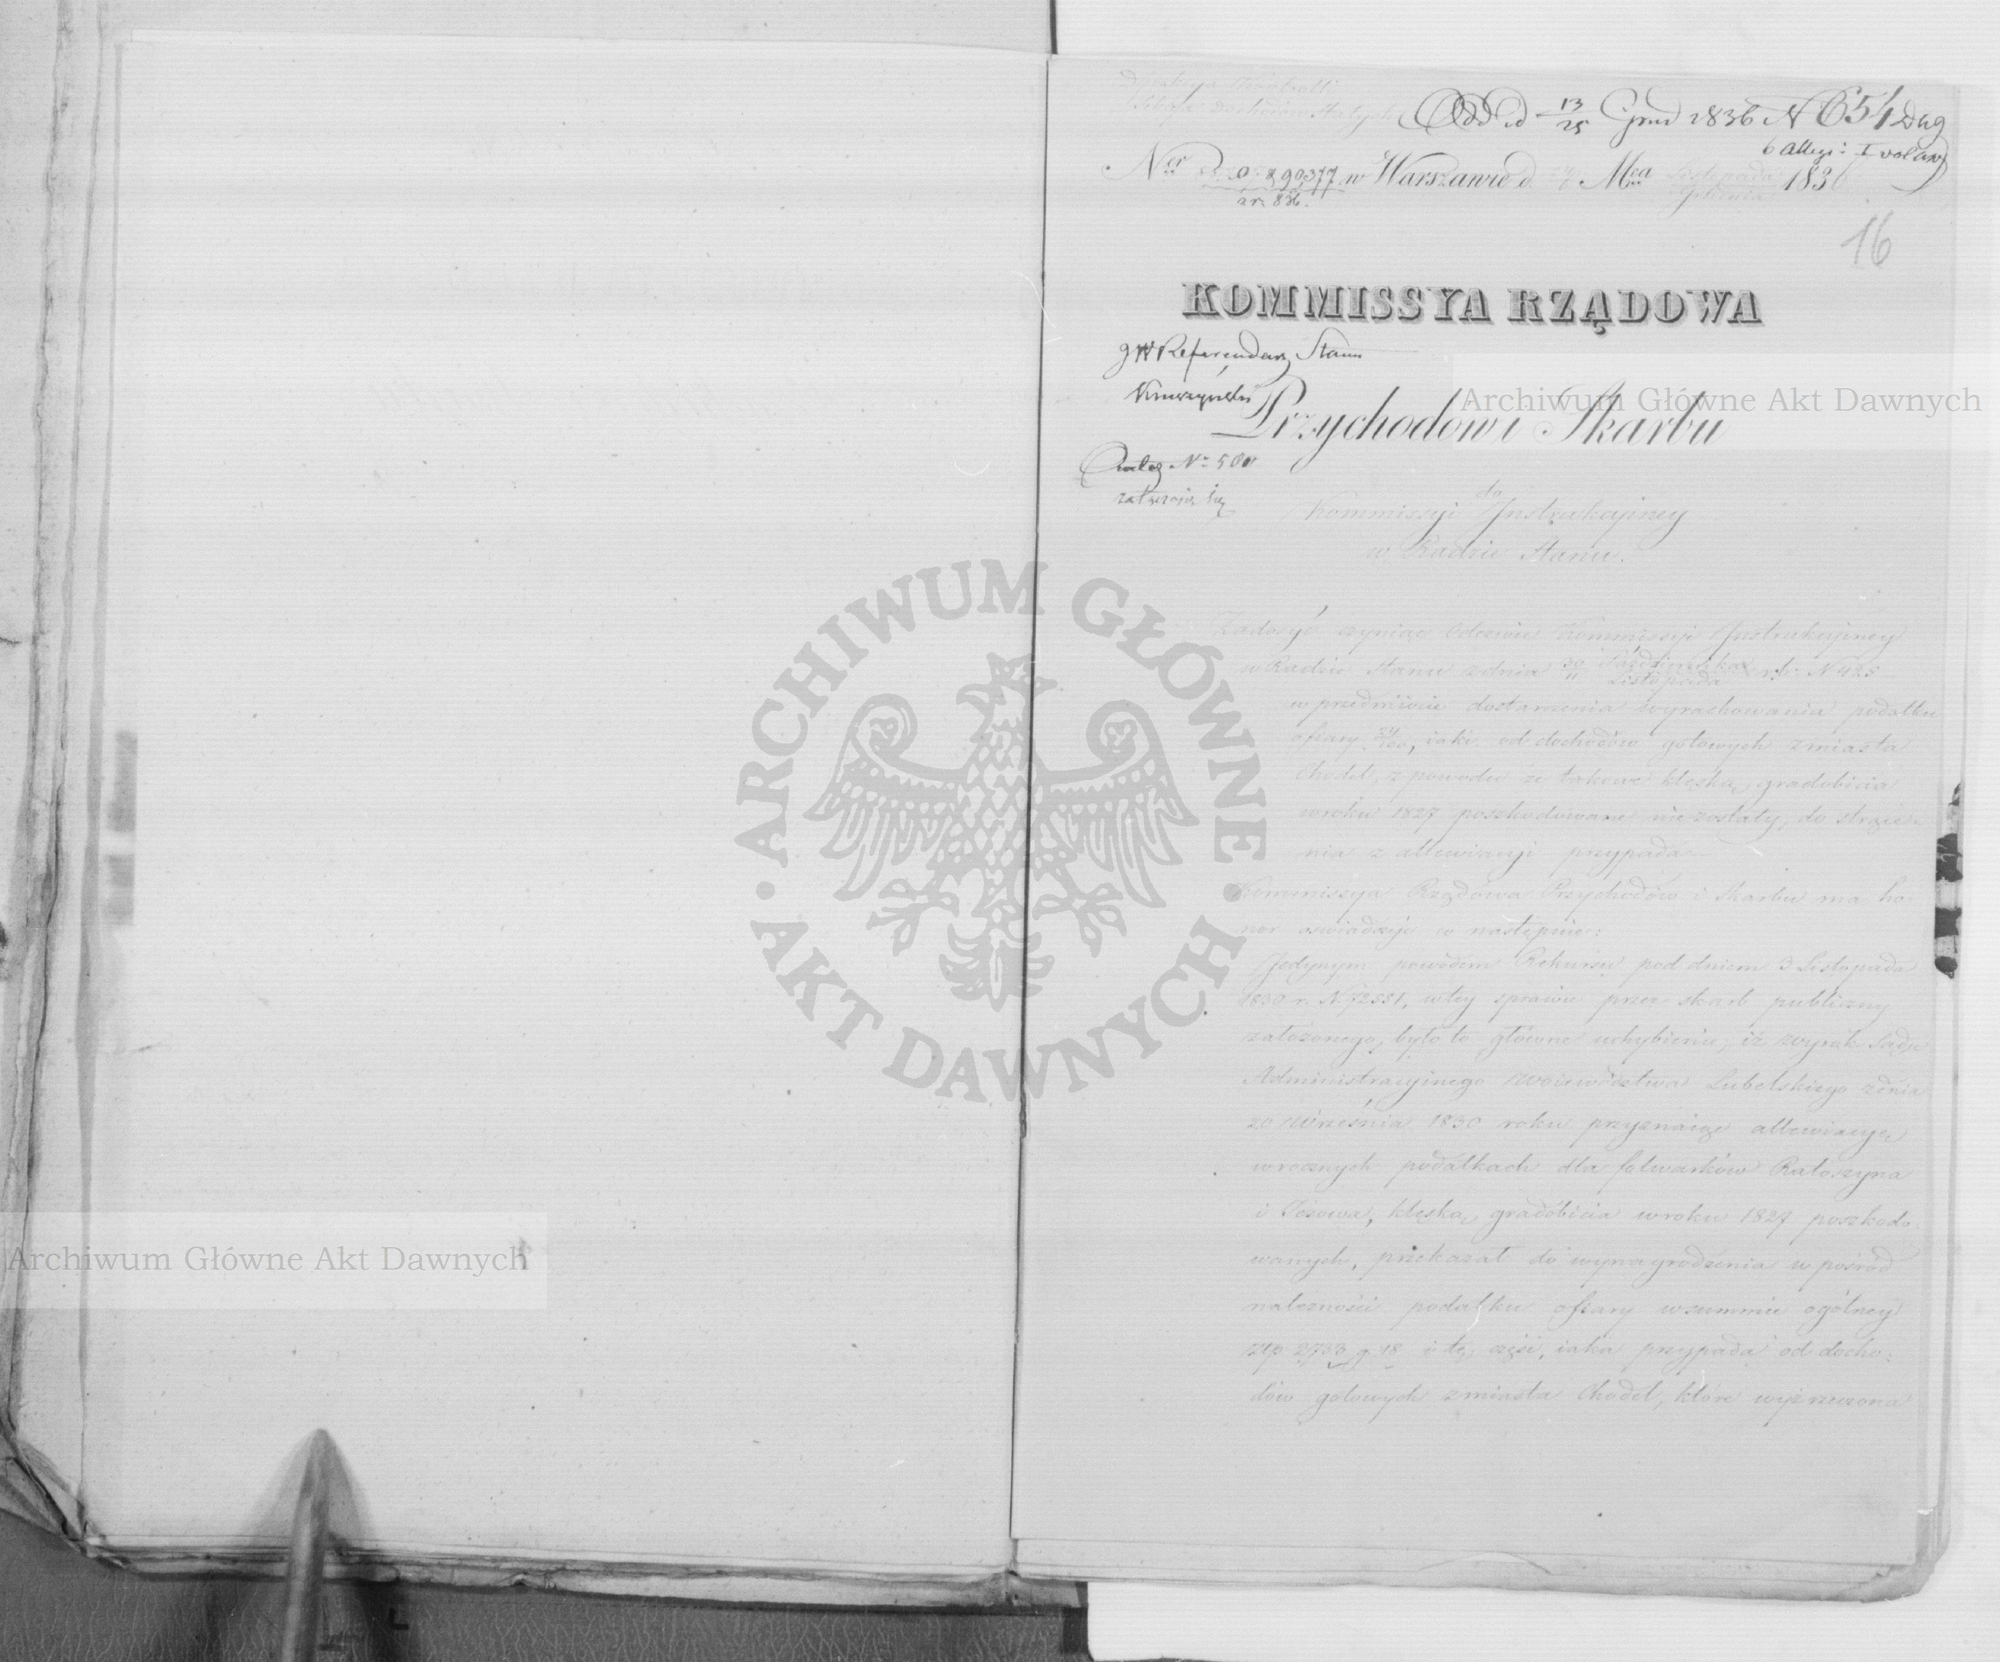 Odd d 13/25 Grud 1836 N 654 Dug
6 alleg: I vol aw
Ner 90377 w Warszawie d. Mca 183
z r. 836.
16
KOMMISSYA RZĄDOWA
JW Referendarz Stanu
Przychodów i Skarbu
do
Kommissyi Instrukcyiney
w Radzie Stanu.
Zadosyć czyniąc Odezwie Kommissyi Instrukcyiney
w Radzie Stanu z dnia 30/11 Października/Listopada r. b. N 425
w przedmiocie dostarczenia wyrachowania podatku
ofiary 24/100, iaki od dochodów gotowych z miasta
Chodel, z powodu ze takowe klęską gradobicia
w roku 1827 poszkodowane nie zostały, do strące-
nia z allewiacyi przypada
Kommissya Rządowa Przychodów i Skarbu ma ho-
nor oświadczyć w następnie:
Jedynym powodem Rekursu pod dniem 3 Listopada
1830 r. N. 72551, w tey sprawie przez skarb publiczny
założonego, było to główne uchybienie, iż wyrok Sądu
Administracyinego Woiewództwa Lubelskiego z dnia
20 Września 1830 roku przyznaiąc allewiacyę
w rocznych podatkach dla folwarków Ratoszyna
i Osowa, klęską gradobicia w roku 1827 poszkodo-
wanych, przekazał do wynagrodzenia w pośród
należności podatku ofiary w summie ogólney
Złp 2733 g 18 i tę część, iaka przypada od docho-
dów gotowych z miasta Chodel, które wyż rzeczoną
Archiwum Główne Akt Dawnych
Archiwum Główne Akt Dawnych
ARCHIWUM GŁÓWNE
AKT DAWNYCH